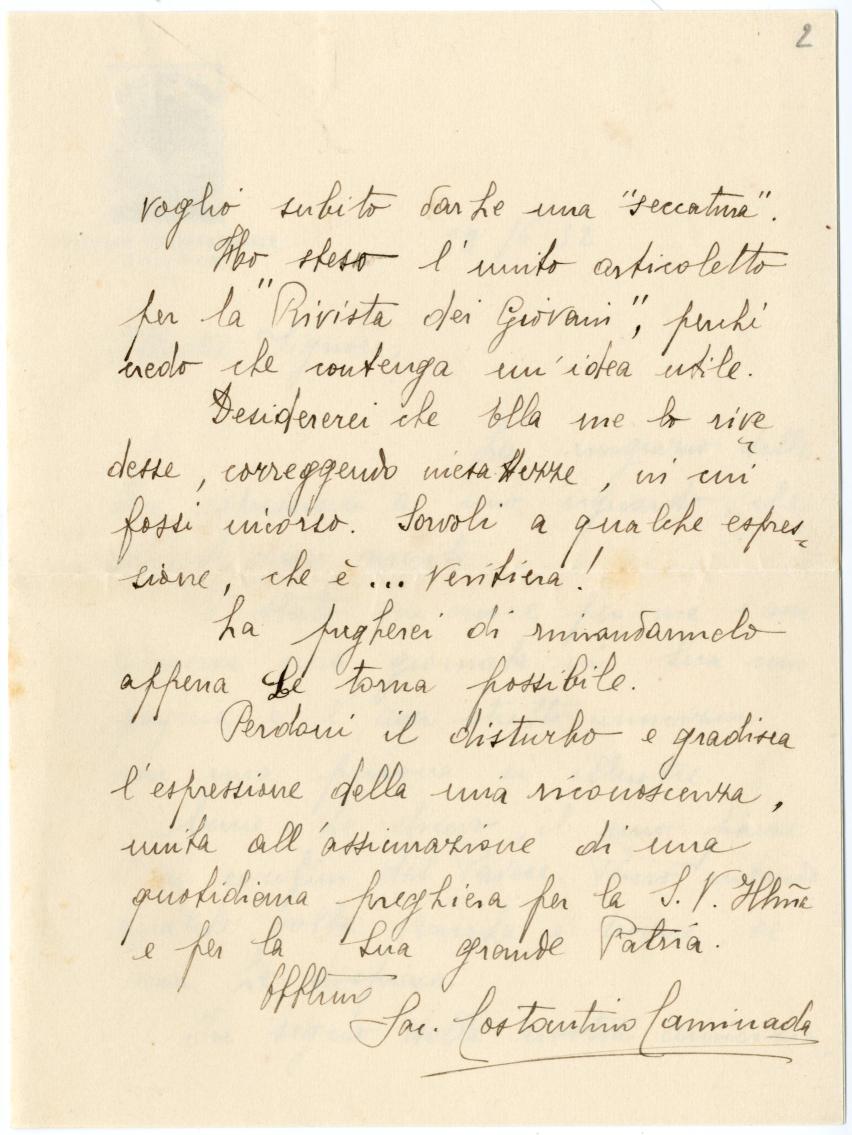 2
voglio subito darLe una "seccatura".
Ho steso l'unito articoletto
per la "Rivista dei Giovani", perché
credo che contenga un'idea utile.
Desidererei che Ella me lo rive
desse, correggendo inesattezze, in cui
fossi incorso. Sorvoli a qualche espres-
sione, che è ... veritiera!
La pregherei di rimandarmelo
appena Le torna possibile.
Perdoni il disturbo e gradisca
l'espressione della mia riconoscenza,
unita all'assicurazione di una
quotidiana preghiera per la S. V. Ill̃ma
e per la Sua grande Patria.
Obblmo
Sac. Costantino Caminada